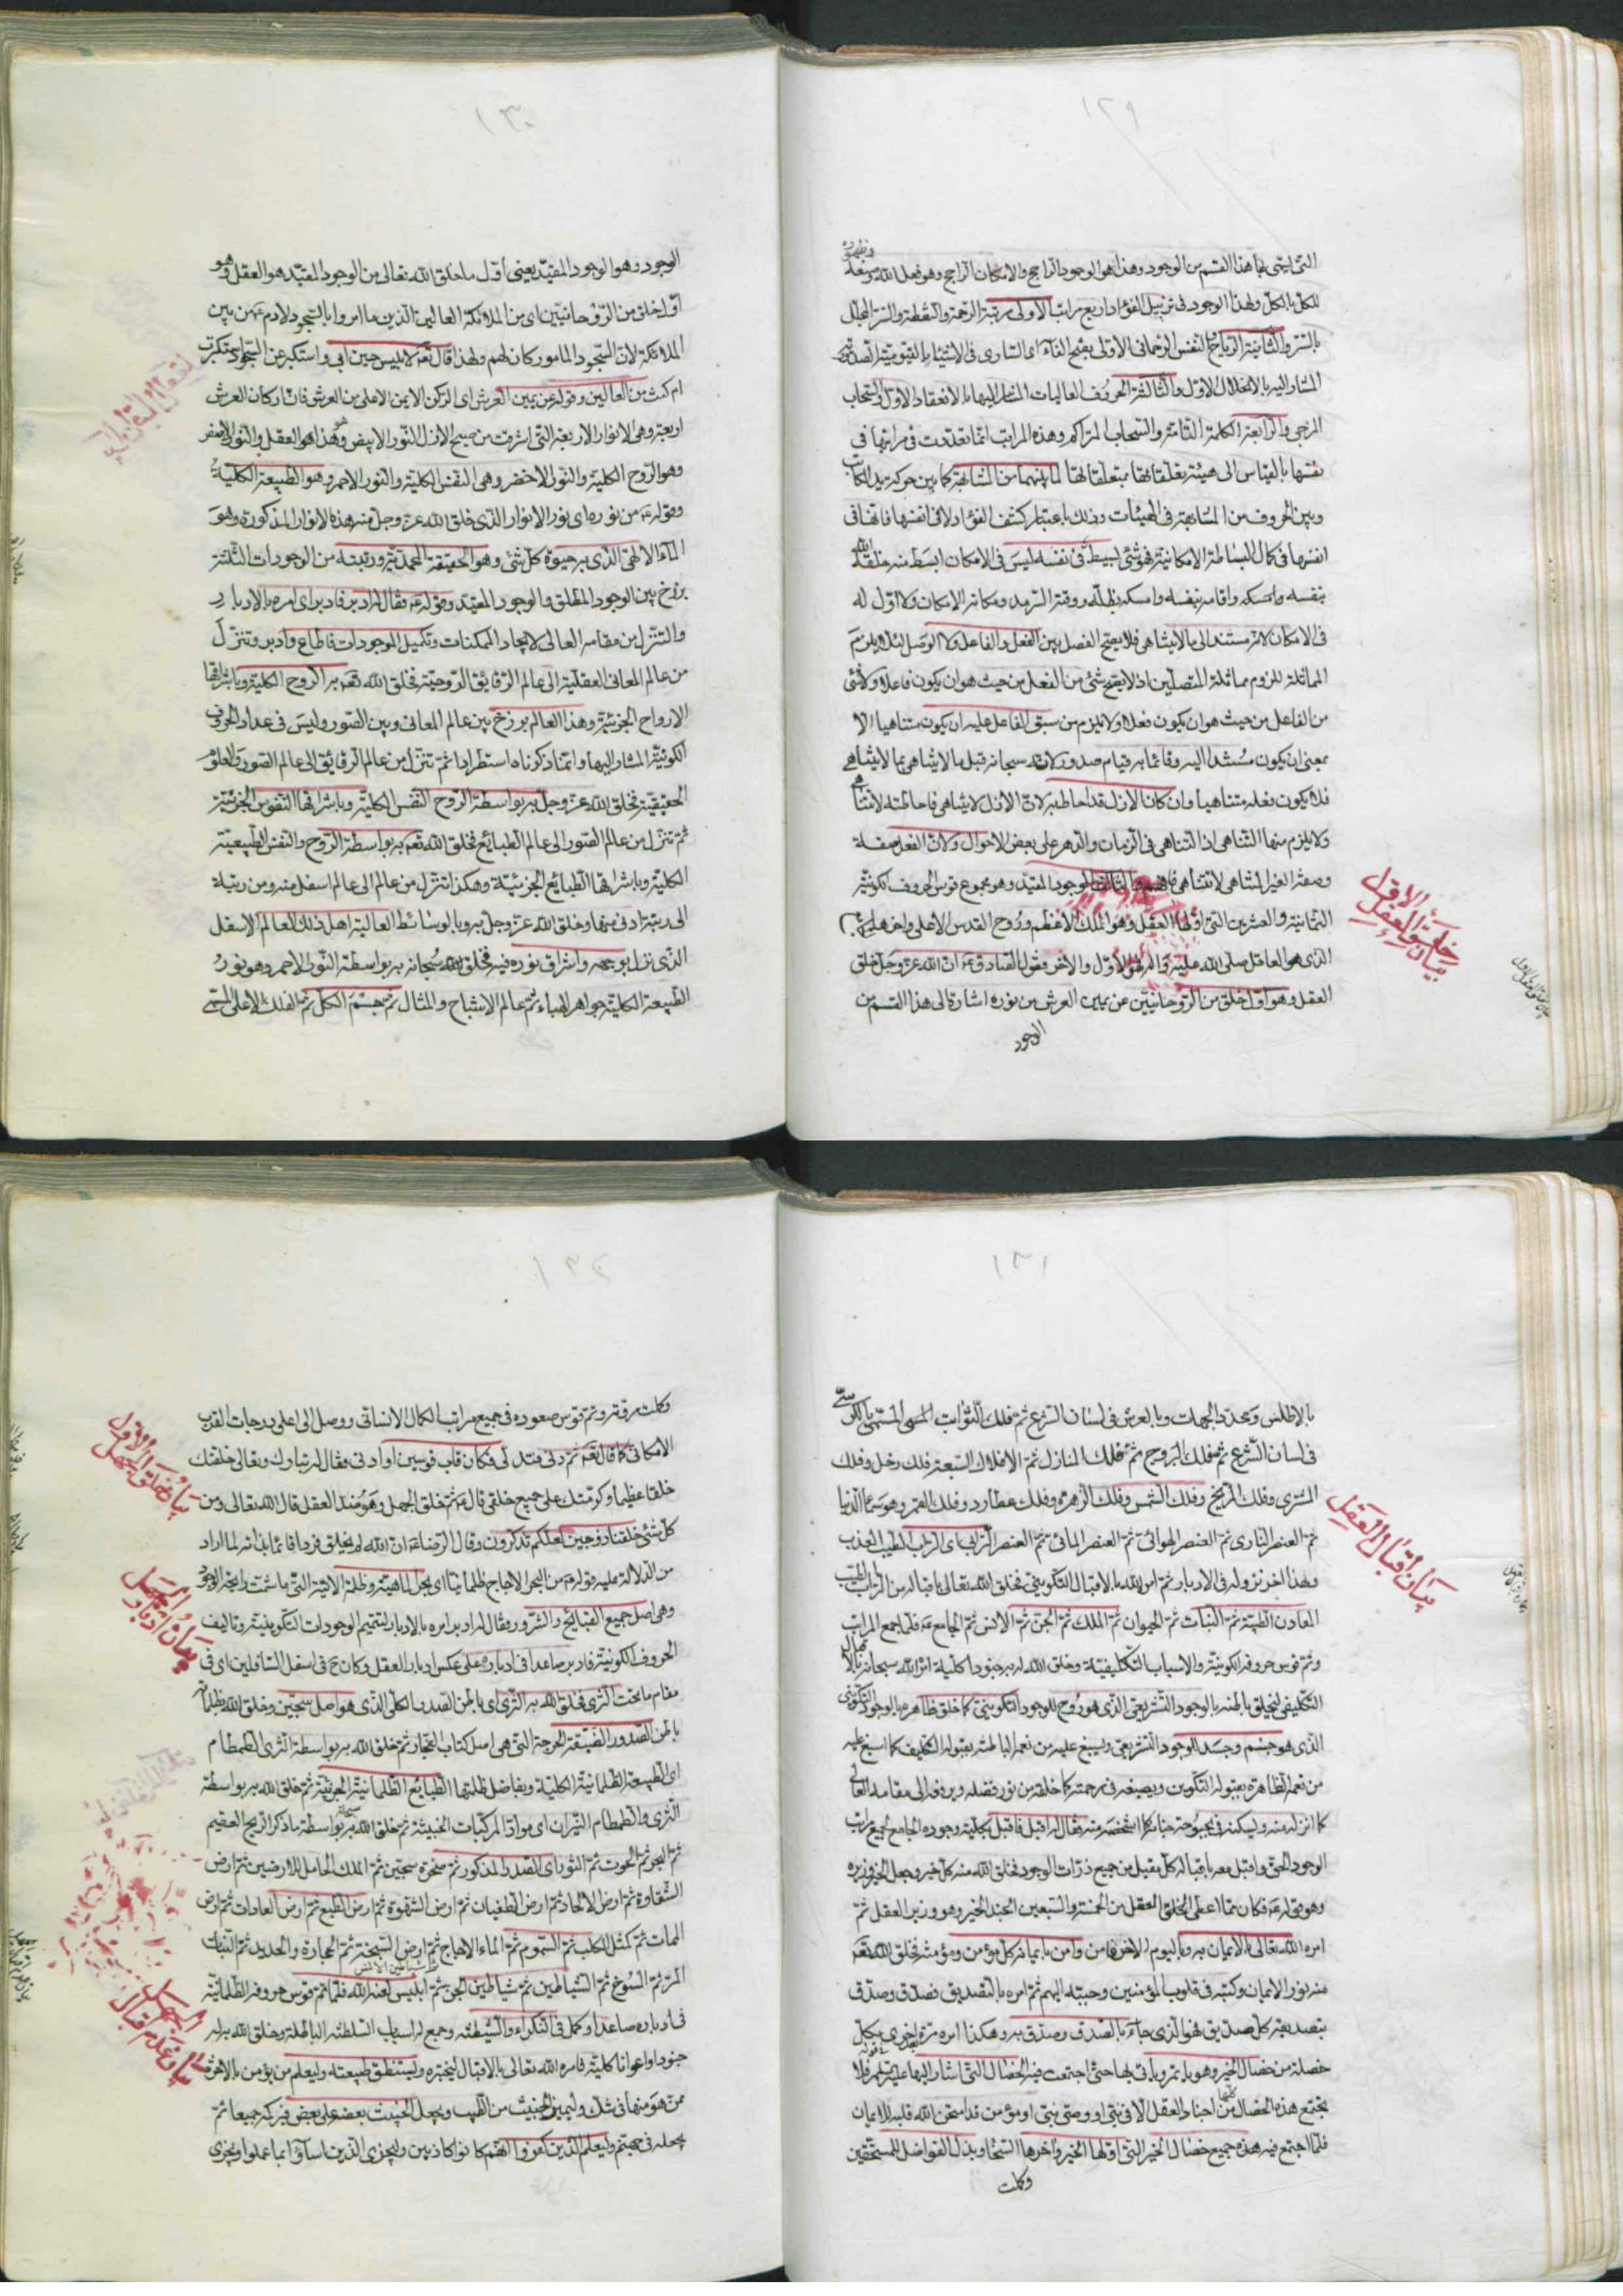 ١٢٩
التي ينتهي بها هذا القسم من الوجود وهذا هو الوجود الراجح والامكان الراجح وهو فعل الله وصنعه
للكل بالكل ولهذا الوجود في تنزيل الفؤاد اربع مراتب الاولى رتبة الرحمة والنقطة والسر المجلل
بالسر والثانية الرياح والنفس الرحماني الاولى بفتح الفاء اي الساري في الاشياء بالقيومية الصدورية
المشار اليه بالانحلال الاول والثالثة الحروف العاليات المشار اليها بالانعقاد الاول والسحاب
المزجى والرابعة الكلمة التامة والسحاب المتراكم وهذه المراتب انما تعددت في مراتبها في
نفسها بالقياس الى هيئة تعلقاتها بمتعلقاتها لما بينهما من المشابهة كما بين حركة يد الكاتب
وبين الحروف من المشابهة في الهيئات وذلك باعتبار كشف الفؤاد لا في انفسها فانها في
انفسها في كمال البساطة الامكانية فهو شيء بسيط في نفسه ليس في الامكان ابسط منه خلقه الله
بنفسه وامسكه واقامه بنفسه وامسكه بظله ووقته السرمد ومكانه الامكان ولا اول له
في الامكان لانه مستند الى ما لا يتناهى فلا يصح الفصل بين الفعل والفاعل ولا الوصل لئلا يلزم
المماثلة للزوم مماثلة المتصلين اذ لا يصح شيء من الفعل من حيث هو ان يكون فاعلا ولا شيء
من الفاعل من حيث هو ان يكون فعلا ولا يلزم من سبق الفاعل عليه ان يكون متناهيا الا
بمعنى ان يكون مسندا اليه وقائما به قيام صدور لانه سبحانه قبل ما لا يتناهى بما لا يتناهى
فلا يكون فعله متناهيا وان كان الازل قد احاط به لان الازل لا يتناهى فاحاطته لا تتناهى
ولا يلزم منها التناهي اذ التناهي في الزمان والدهر على بعض الاحوال ولان الفعل صفة
وصفة الغير المتناهي لا تتناهى القسم الثالث الوجود المقيد وهو مجموع قوس الحروف الكونية
الثمانية والعشرين التي اولها العقل وهو الملك الاعظم وروح القدس الاعلى واخرها
الذي هو العاقل صلى الله عليه واله هو الاول والاخر وقول الصادق ع ان الله عز وجل خلق
العقل وهو اول خلق من الروحانيين عن يمين العرش من نوره اشارة الى هذا القسم من
الوجود
بيان خلق العقل الاول
١٣٠
الوجود وهو الوجود المقيد يعني اول ما خلق الله تعالى من الوجود المقيد هو العقل وهو
اول خلق من الروحانيين اي من الملائكة العالين الذين ما امروا بالسجود لادم ع من بين
الملائكة لان السجود المامور كان لهم ولهذا قال تعالى لابليس حين ابى واستكبر عن السجود استكبرت
ام كنت من العالين وقوله عن يمين العرش اي الركن الايمن الاعلى من العرش فان اركان العرش
اربعة وهي الانوار الاربعة التي اشرقت من صبح الازل النور الابيض وهذا هو العقل والنور الاصفر
وهو الروح الكلية والنور الاخضر وهي النفس الكلية والنور الاحمر وهو الطبيعة الكلية
وقوله ع من نوره اي نور الانوار الذي خلق الله عز وجل منه هذه الانوار المذكورة وهو
الماء الالهي الذي به حيوة كل شيء وهو الحقيقة المحمدية ورتبته من الوجودات الثلثة
برزخ بين الوجود المطلق والوجود المقيد وقوله ع فقال له ادبر فادبر اي امره بالادبار
والتنزل من مقامه العالي لايجاد الممكنات وتكميل الموجودات فاطاع وادبر وتنزل
من عالم المعاني العقلية الى عالم الرقايق الروحية فخلق الله تعالى به الروح الكلية وباشراقها
الارواح الجزئية وهذا العالم برزخ بين عالم المعاني وبين الصور وليس في عداد الحروف
الكونية المشار اليها وانما ذكرناه استطرادا ثم تنزل من عالم الرقائق الى عالم الصور والعلوم
الحقيقية فخلق الله عز وجل به بواسطة الروح النفس الكلية وباشراقها النفوس الجزئية
ثم تنزل من عالم الصور الى عالم الطبايع فخلق الله تعالى به بواسطة الروح والنفس الطبيعية
الكلية وباشراقها الطبايع الجزئية وهكذا تنزل من عالم الى عالم اسفل منه ومن رتبة
الى رتبة ادنى منها وخلق الله عز وجل به وبالوسائط العالية اهل ذلك العالم الاسفل
الذي نزل بوجهه واشراق نوره فيه فخلق الله سبحانه به بواسطة النور الاحمر وهو نور
الطبيعة الكلية جواهر الهباء ثم عالم الاشباح والمثال ثم جسم الكل ثم الفلك الاعلى المسمى
١٣١
بالاطلس ومحدد الجهات وبالعرش في لسان الشرع ثم فلك الثوابت المسمى بالكرسي
في لسان الشرع ثم فلك البروج ثم فلك المنازل ثم الافلاك السبعة فلك زحل وفلك
المشتري وفلك المريخ وفلك الشمس وفلك الزهرة وفلك عطارد وفلك القمر وهو سماء الدنيا
ثم العنصر الناري ثم العنصر الهوائي ثم العنصر المائي ثم العنصر الترابي اي التراب الطيب العذب
وهذا اخر نزوله في الادبار ثم امره الله بالاقبال التكويني فخلق الله تعالى باقباله من التراب الطيب
المعادن الطيبة ثم النبات ثم الحيوان ثم الملك ثم الجن ثم الانس ثم الجامع ع فلما جمع المراتب
وتم قوس حروفه الكونية والاسباب التكليفية وخلق الله له به جنودا كلية امره الله سبحانه بالاقبال
التكليفي ليخلق باطنه بالوجود التشريعي الذي هو روح للوجود التكويني كما خلق ظاهره بالوجود التكويني
الذي هو جسم وجسد للوجود التشريعي وليسبغ عليه من نعمه الباطنة بقبوله التكليف كما اسبغ عليه
من نعمه الظاهرة بقبوله التكوين ويصبغه في رحمته كما خلقه من نور فضله ويرفعه الى مقامه العالي
كما انزله منه وليسكنه في بحبوحة جنانه كما اشخصه منه فقال له اقبل فاقبل بكلية وجوده الجامع لجميع مراتب
الوجود الحق واقبل معه باقباله كل مقبل من جميع ذرات الوجود فخلق الله منه كل خير وجعل الخير وزيره
وهو قوله ع فكان مما اعطى الخالق العقل من الخمسة والسبعين الجند الخير وهو وزير العقل ثم
امره الله تعالى بالايمان به وباليوم الاخر فامن وامن بايمانه كل مؤمن ومؤمنة فخلق الله تعالى
منه نور الايمان وكتبه في قلوب المؤمنين وحببه اليهم ثم امره بالتصديق فصدق وصدق
بتصديقه كل صديق فهو الذي جاء بالصدق وصدق به وهكذا امره مرة اخرى بكل
خصلة من خصال الخير وهو ياتمر وياتي بها حتى اجتمعت فيه الخصال التي اشار اليها عليه السلم فلا
يجتمع هذه الخصال كلها من اجناد العقل الا في نبي او وصي نبي او مؤمن قد امتحن الله قلبه للايمان
فلما اجتمع فيه هذه جميع خصال الخير التي اولها الخير واخرها السخاء وبذل الفواضل للمستحقين
وكملت
بيان اقبال العقل
١٣٢
وكملت مرقته وتم قوس صعوده في جميع مراتب الكمال الانساني ووصل الى اعلى درجات القرب
الامكاني كما قال تعالى ثم دنى فتدلى فكان قاب قوسين او ادنى فقال له تبارك وتعالى خلقتك
خلقا عظيما وكرمتك على جميع خلقي قال ع ثم خلق الجهل وهو ضد العقل قال الله تعالى ومن
كل شيء خلقنا زوجين لعلكم تذكرون وقال الرضا ع ان الله لم يخلق فردا قائما بذاته لما اراد
من الدلالة عليه قوله ع من البحر الاجاج ظلمانيا اي بحر الماهية وظلمة الانية التي ما شمت رايحة الوجود
وهي اصل جميع القبائح والشرور فقال له ادبر امره بالادبار لتتميم الوجودات التكوينية وتاليف
الحروف الكونية فادبر صاعدا في ادباره على عكس ادبار العقل وكان ح في اسفل السافلين اي في
مقام ما تحت الثرى فخلق الله به الثرى اي باطن الصدر الكلي الذي هو اصل سجين وخلق الله بظلماته
باطن الصدور الضيقة الحرجة التي هي اصل كتاب الفجار ثم خلق الله به بواسطة الثرى الطمطام
اي الطبيعة الظلمانية الكلية وبفاضل ظلمتها الطبايع الظلمانية الجزئية ثم خلق الله به بواسطة
الثرى والطمطام النيران اي مواد المركبات الخبيثة ثم خلق الله سبحانه به بواسطة ما ذكر الريح العقيم
ثم البحر ثم الحوت ثم الثور اي الصدر المذكور ثم صخرة سجين ثم الملك الحامل للارضين ثم ارض
الشقاوة ثم ارض الالحاد ثم ارض الطغيان ثم ارض الشهوة ثم ارض الطبع ثم ارض العادات ثم ارض
الممات ثم كمثل الكلب ثم السموم ثم الماء الاجاج ثم ارض السبخة ثم الحجارة والحديد ثم النبات
المر ثم المسوخ ثم الشياطين ثم شياطين الجن ثم شياطين الانس ثم ابليس لعنه الله فلما تم قوس حروفه الظلمانية
في ادباره صاعدا وكمل في النكراء والشيطنة وجمع له اسباب السلطنة الباطلة وخلق الله به له
جنودا واعوانا كلية فامره الله تعالى بالاقبال ليختبره وليستنطق طبيعته وليعلم من يؤمن بالاخرة
ممن هو منها في شك وليميز الخبيث من الطيب ويجعل الخبيث بعضه على بعض فيركمه جميعا ثم
يجعله في جهنم وليعلم الذين كفروا انهم كانوا كاذبين وليجزي الذين اساؤا بما عملوا ويجزي
بيان خلق الجهل الاول
بيان ادبار الجهل
بيان عدم اقبال الجهل